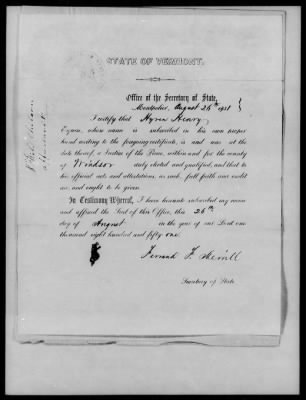 STATE OF VERMONT.
Office of the Secretary of State,
Montpelier, August 26th 1851 }
I certify that Hyren Henry
Esquire, whose name is subscribed in his own proper
hand writing to the foregoing certificate, is and was at the
date thereof, a Justice of the Peace, within and for the county
of Windsor duly elected and qualified, and that to
his official acts and attestations, as such, full faith and credit
are, and ought to be given.
In Testimony Whereof, I have hereunto subscribed my name
and affixed the Seal of this Office, this 26th
day of August in the year of our Lord one
thousand eight hundred and fifty-one.
F. Merrill
Secretary of State